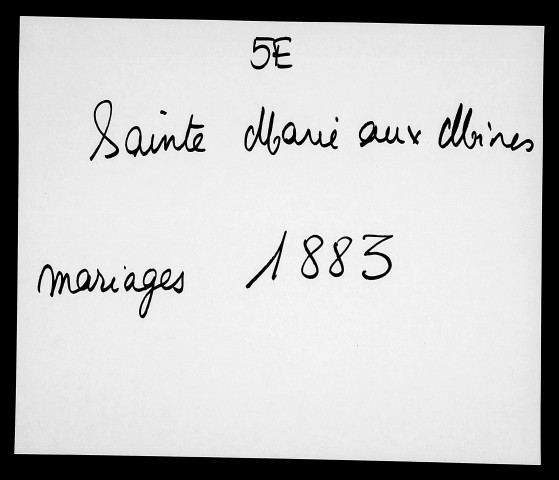 5E
Sainte Marie aux Mines
mariages 1883